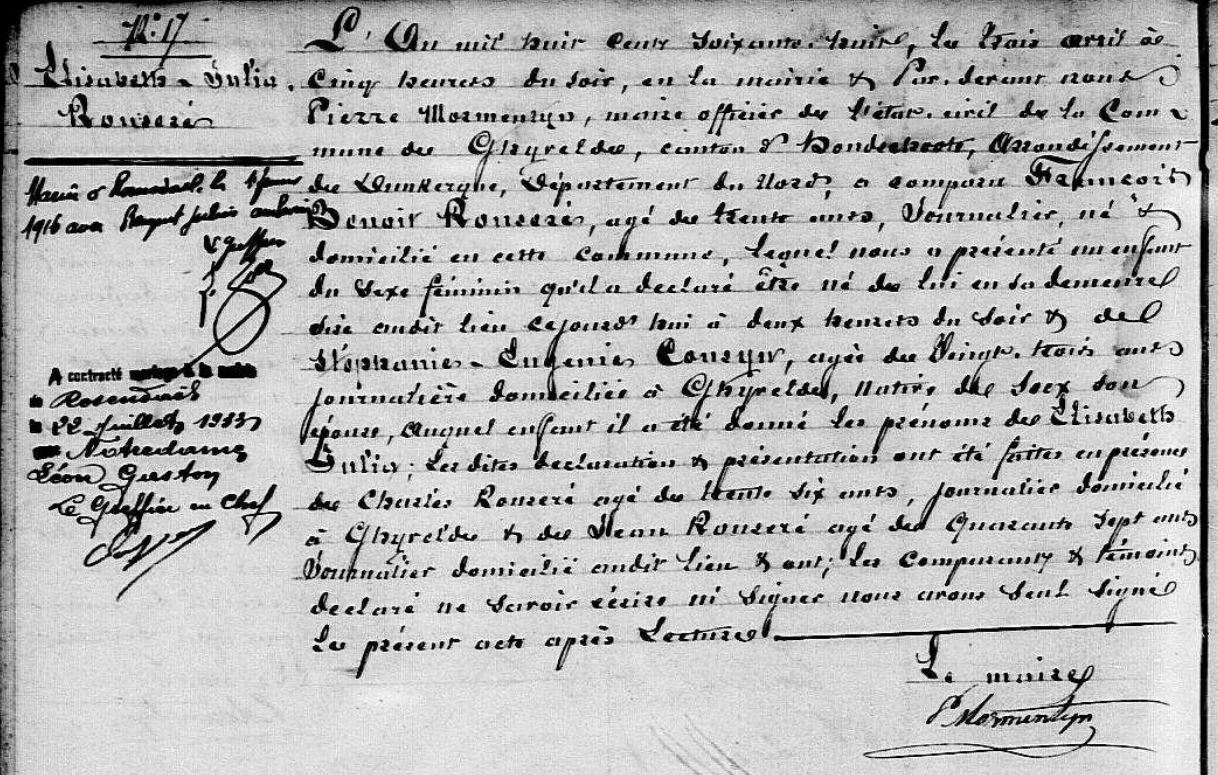 N° 17
Elisabeth-Julia.
Rouseré
1916 avec
A contracté mariage à la mairie
Rosendael
22 Juillet 1933
Notredame
Léon Gaston
Le Greffier en Chef
L'An mil huit cent soixante-huit, le trois avril à
cinq heures du soir, en la mairie & Par-devant nous
Pierre Mormentyn, maire officier de l'état-civil de la Com-
mune de Ghyvelde, canton d'Hondschoote, Arrondissement
de Dunkerque, Département du Nord, a comparu François
Benoit Rouseré, agé de trente ans, Journalier, né &
domicilié en cette commune, lequel nous a présenté un enfant
du sexe féminin qu'il a declaré être né de lui en sa demeure
sise audit lieu cejourd'hui à deux heures du soir & de
Stéphanie-Eugénie Cousyn, agée de Vingt-trois ans
journalière domiciliée à Ghyvelde, native de Socx son
épouse, Auquel enfant il a été donné les prénoms de Elisabeth
Julia; Les dites déclaration & présentation ont été faites en présence
de Charles Rouseré agé de trente six ans, journalier domicilié
à Ghyvelde & de Jean Rouseré agé de Quarante sept ans
Journalier domicilié audit lieu & ont, les comparants & témoins
declaré ne savoir écrire ni signer nous avons seul signé
le présent acte après Lecture.
Le maire
P Mormentyn